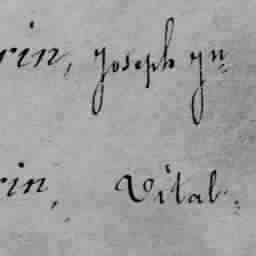 rin, Joseph yn
rin, Vital.